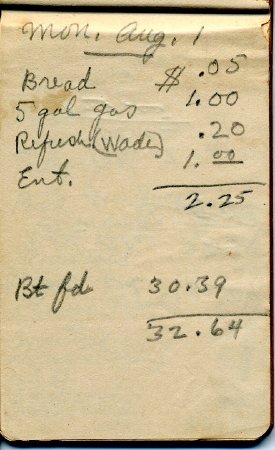 Mon. Aug. 1
Bread $ .05
5 gal gas 1.00
Refresh. (Wade) .20
Ent. 1.00
2.25
Bt fd 30.39
32.64